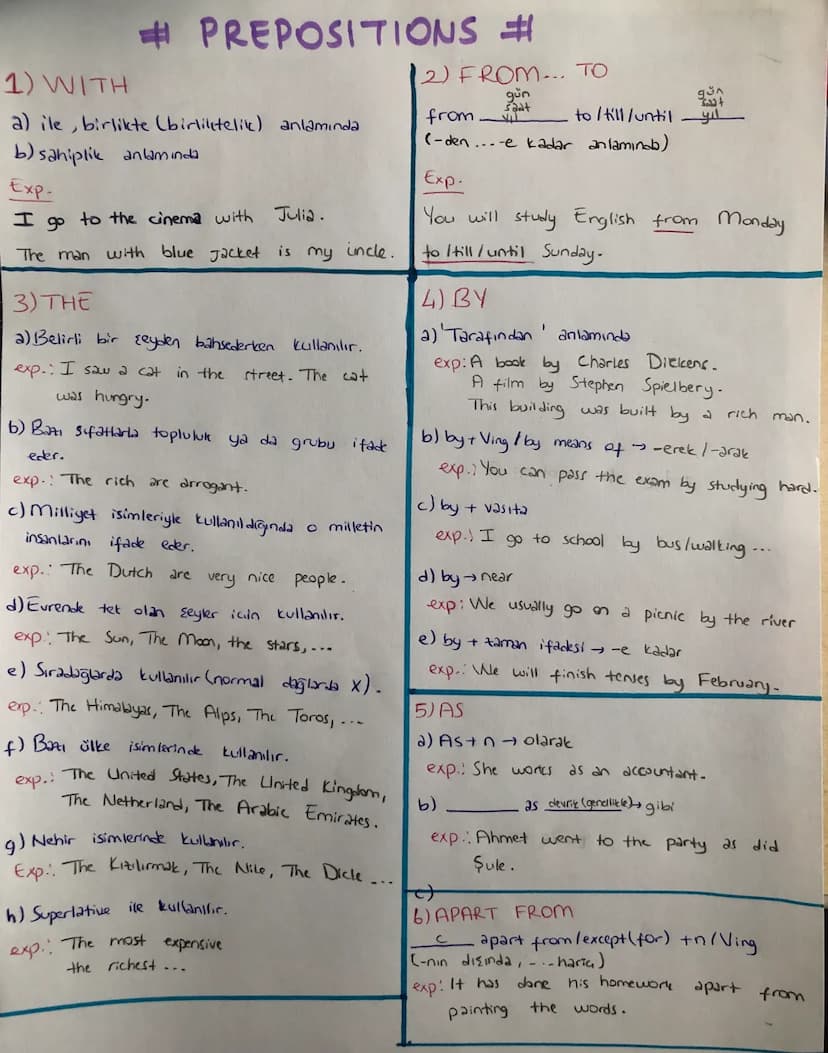 # PREPOSITIONS #
1) WITH
a) ile, birlikte (birliktelik) anlamında
b) sahiplik anlamında
Exp.
I go to the cinema with Julia.
The man with blue jacket is my incle.
2) FROM... TO
gün
saat
yıl
gün
saat
yıl
from ______ to/till/until ______
(-den ...-e kadar anlamında)
Exp.
You will study English from Monday
to/till/until Sunday.
3) THE
a) Belirli bir şeyden bahsederken kullanılır.
exp.: I saw a cat in the street. The cat
was hungry.
b) Bazı sıfatlarla topluluk ya da grubu ifade
eder.
exp.: The rich are arrogant.
c) Milliyet isimleriyle kullanıldığında o milletin
insanlarını ifade eder.
exp.: The Dutch are very nice people.
d) Evrende tek olan şeyler için kullanılır.
exp.: The Sun, The Moon, the stars, ...
e) Sıradağlarda kullanılır (normal dağlarda X).
exp.: The Himalayas, The Alps, The Toros, ...
f) Bazı ülke isimlerinde kullanılır.
exp.: The United States, The United Kingdom,
The Netherland, The Arabic Emirates.
g) Nehir isimlerinde kullanılır.
Exp.: The Kızılırmak, The Nile, The Dicle ...
h) Superlative ile kullanılır.
exp.: The most expensive
the richest ...
4) BY
a) 'Tarafından' anlamında
exp: A book by Charles Dickens.
A film by Stephen Spielbery.
This building was built by a rich man.
b) by + Ving / by means of → -erek / -arak
exp.: You can pass the exam by studying hard.
c) by + vasıta
exp.: I go to school by bus/walking ...
d) by → near
exp: We usually go on a picnic by the river
e) by + zaman ifadesi → -e kadar
exp.: We will finish tenses by February.
5) AS
a) As + n → olarak
exp.: She works as an accountant.
b) ______ as devrik (genellikle) → gibi
exp.: Ahmet went to the party as did
Şule.
c)
6) APART FROM
c apart from/except(for) + n / Ving
(-nın dışında, ... hariç)
exp: It has done his homework apart from
painting the words.